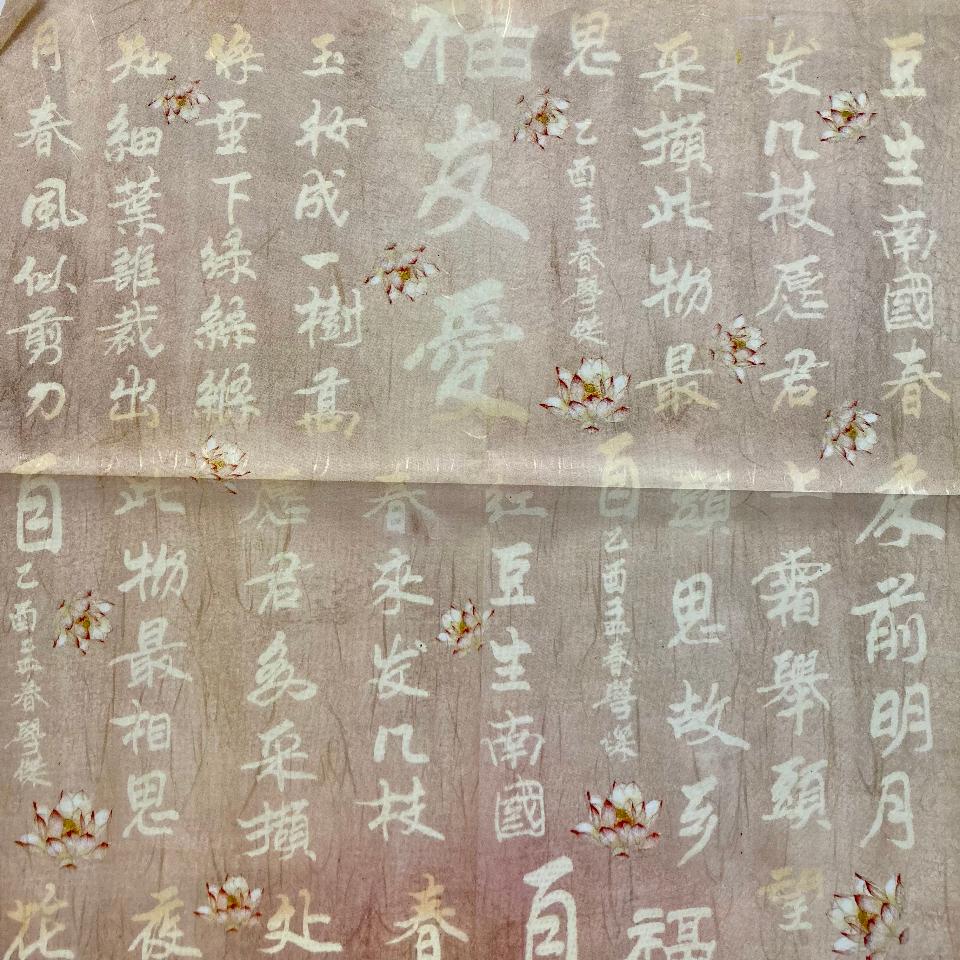 豆生南國春
发几枝愿君
采擷此物最
思
乙酉孟春學傑
友愛
玉妝成一樹高
垂下緑絲絛
知細葉誰裁出
月春風似剪刀
床前明月
上霜舉頭
頭思故乡
百
乙酉孟春學傑
红豆生南國
春來发几枝
愿君多采擷
此物最相思
百
乙酉孟春學傑
望
福
百
春
处
夜
花